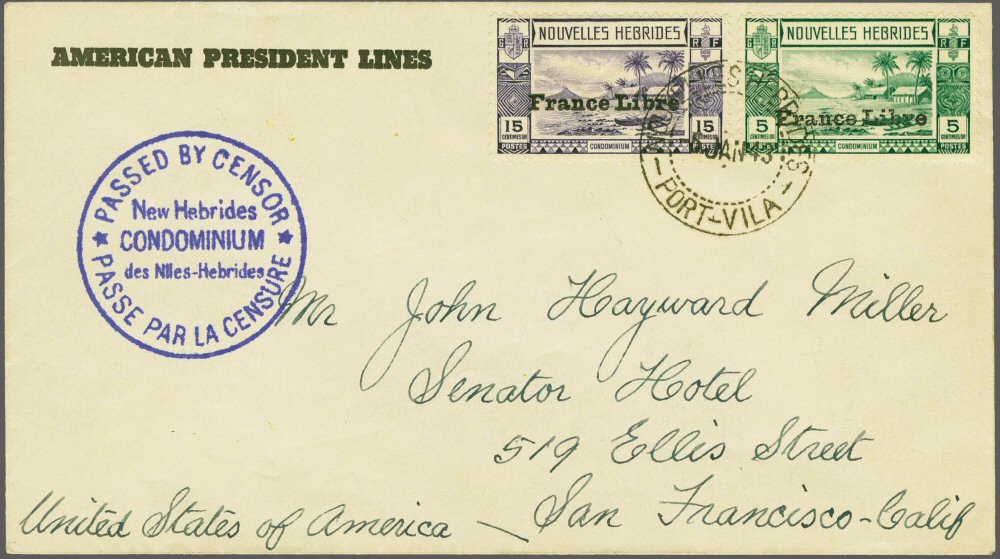 AMERICAN PRESIDENT LINES
G R NOUVELLES HEBRIDES R F
France Libre
15 CENTIMES OR CONDOMINIUM 15 CENTIMES OR POSTES
G R NOUVELLES HEBRIDES R F
France Libre
5 CENTIMES OR CONDOMINIUM 5 CENTIMES OR POSTES
JAN 43
PORT-VILA
PASSED BY CENSOR
New Hebrides
CONDOMINIUM
des Nlles-Hebrides
PASSE PAR LA CENSURE
Mr John Hayward Miller
Senator Hotel
519 Ellis Street
San Francisco-Calif
United States of America